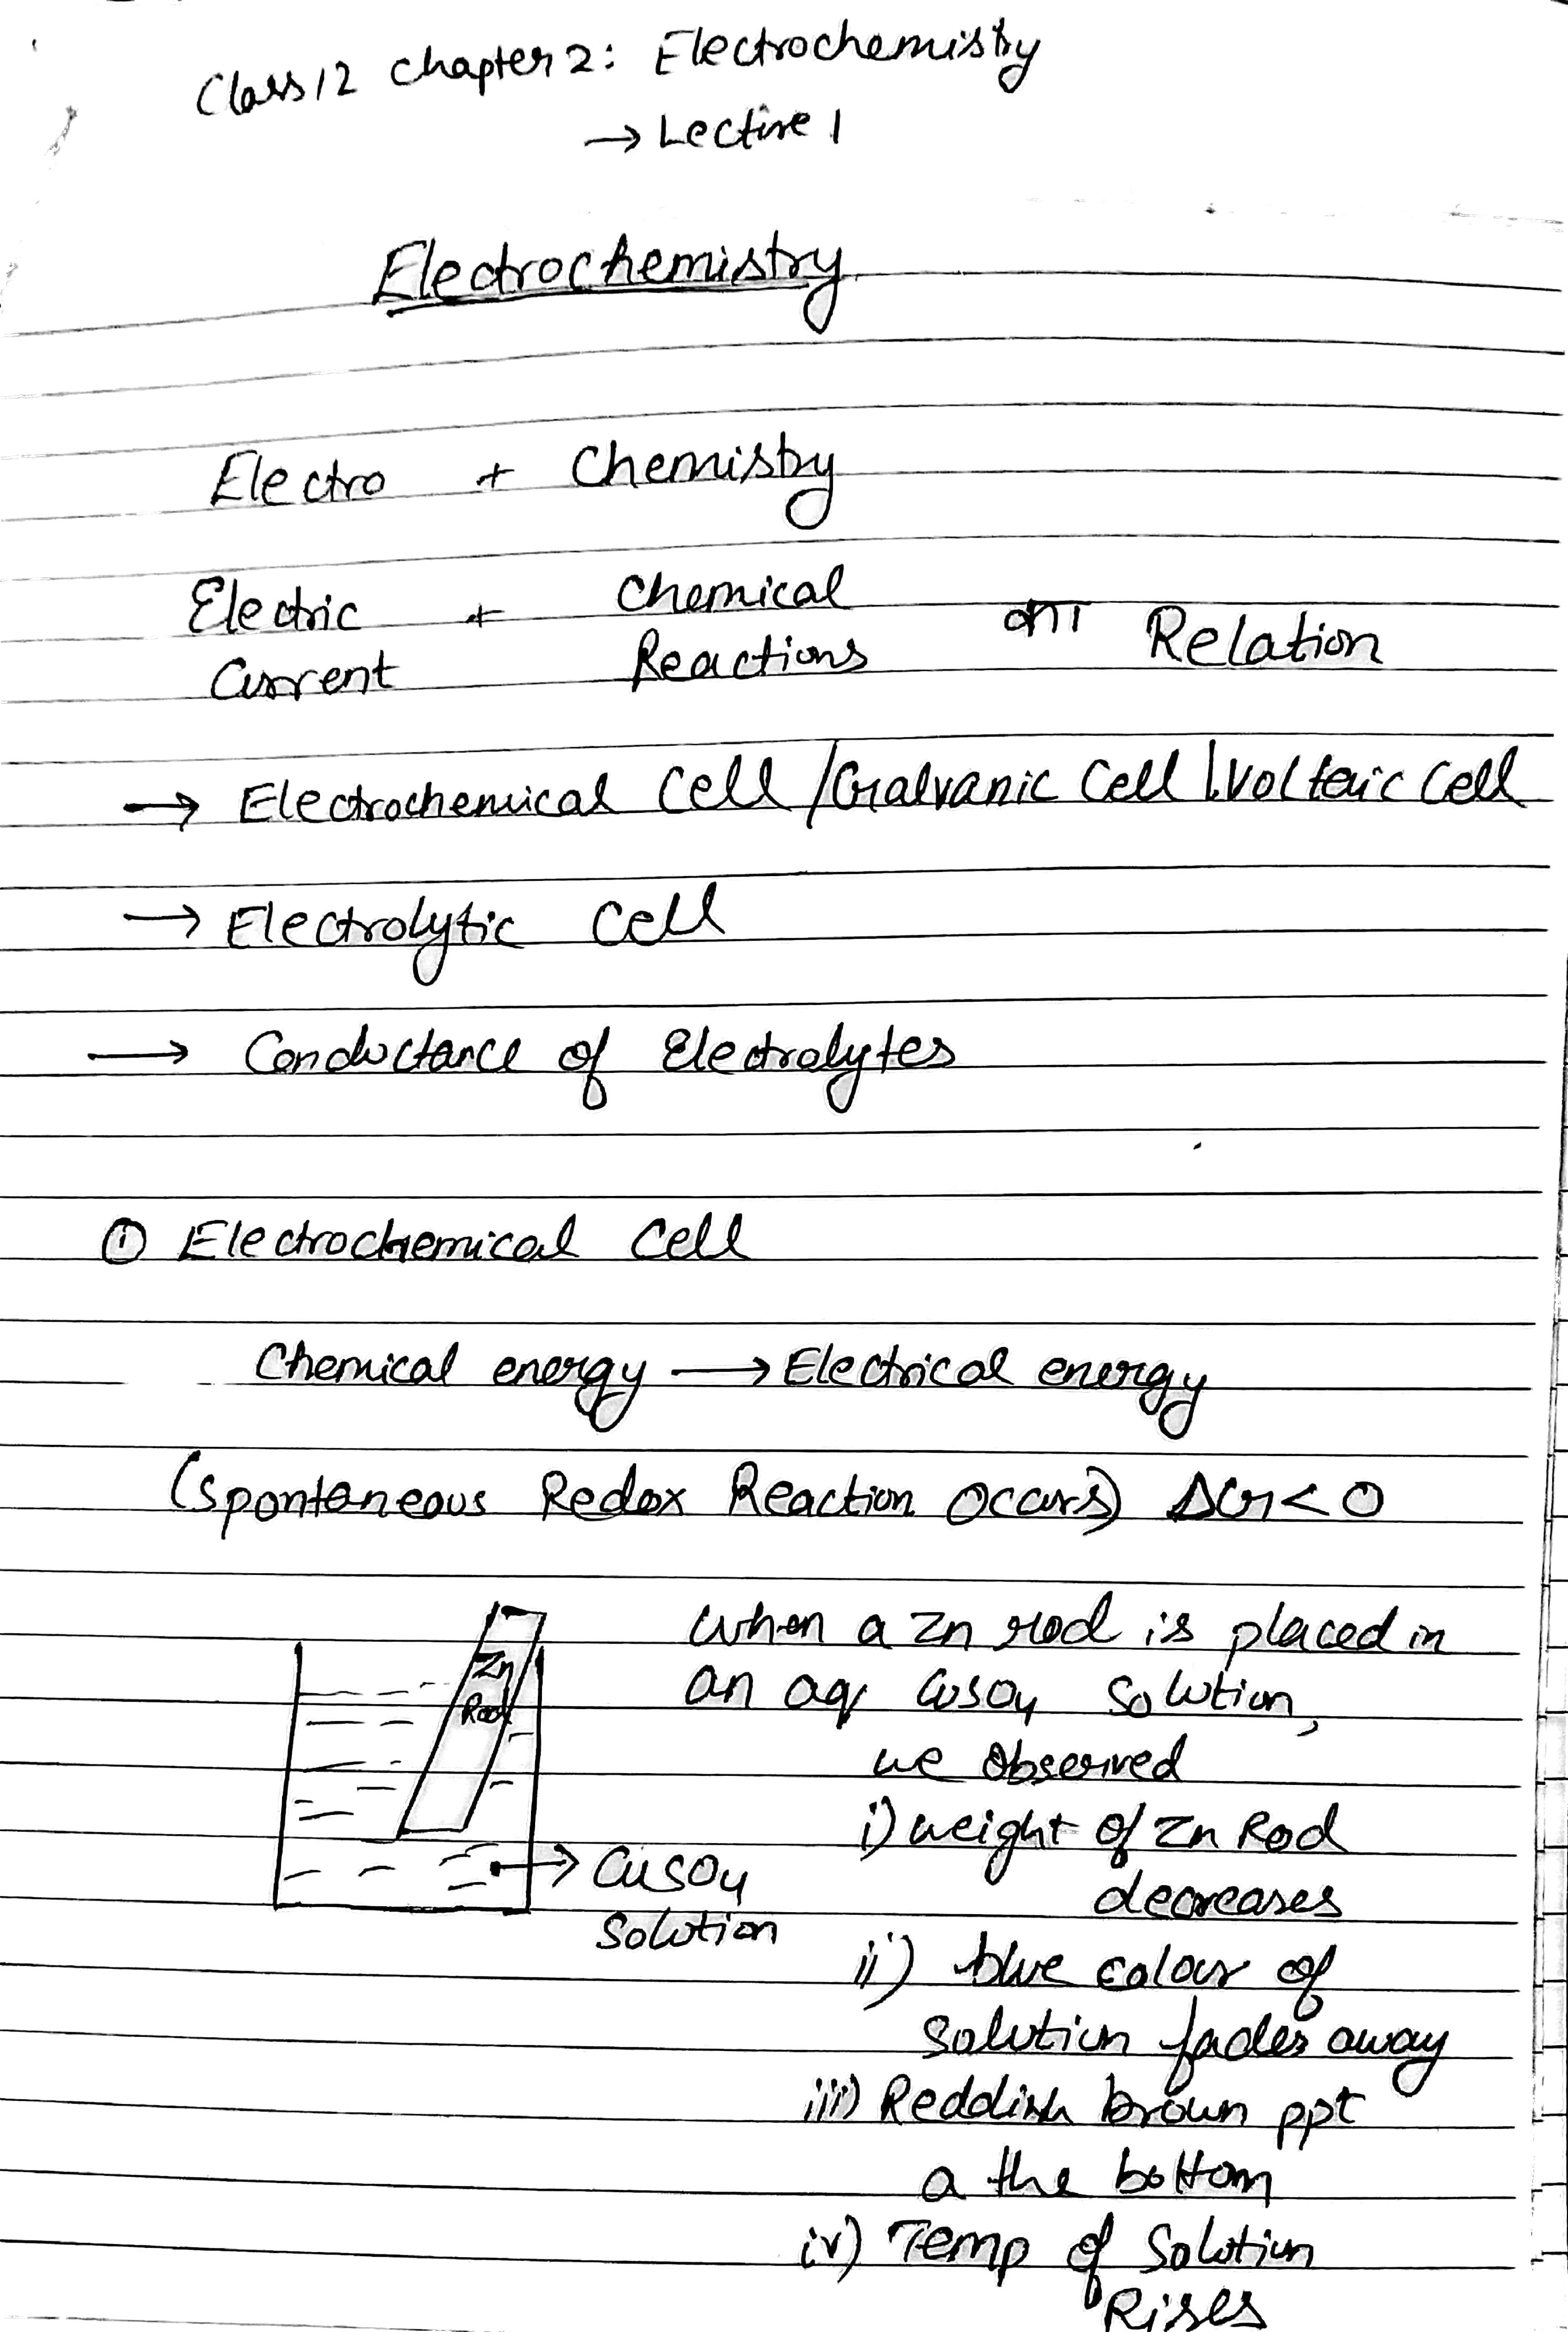 Class 12 Chapter 2: Electrochemistry
→ Lecture 1
Electrochemistry
Electro + Chemistry
Electric Current + Chemical Reactions का Relation
→ Electrochemical Cell / Galvanic Cell | Voltaic Cell
→ Electrolytic Cell
→ Conductance of Electrolytes
① Electrochemical Cell
Chemical energy → Electrical energy
(Spontaneous Redox Reaction Occurs) ΔG < 0
Zn
Rod
CuSO4
Solution
When a Zn rod is placed in
an aq CuSO4 Solution,
we Observed
i) weight of Zn Rod
decreases
ii) blue colour of
solution fades away
iii) Reddish brown ppt
a the bottom
iv) Temp of Solution
Rises